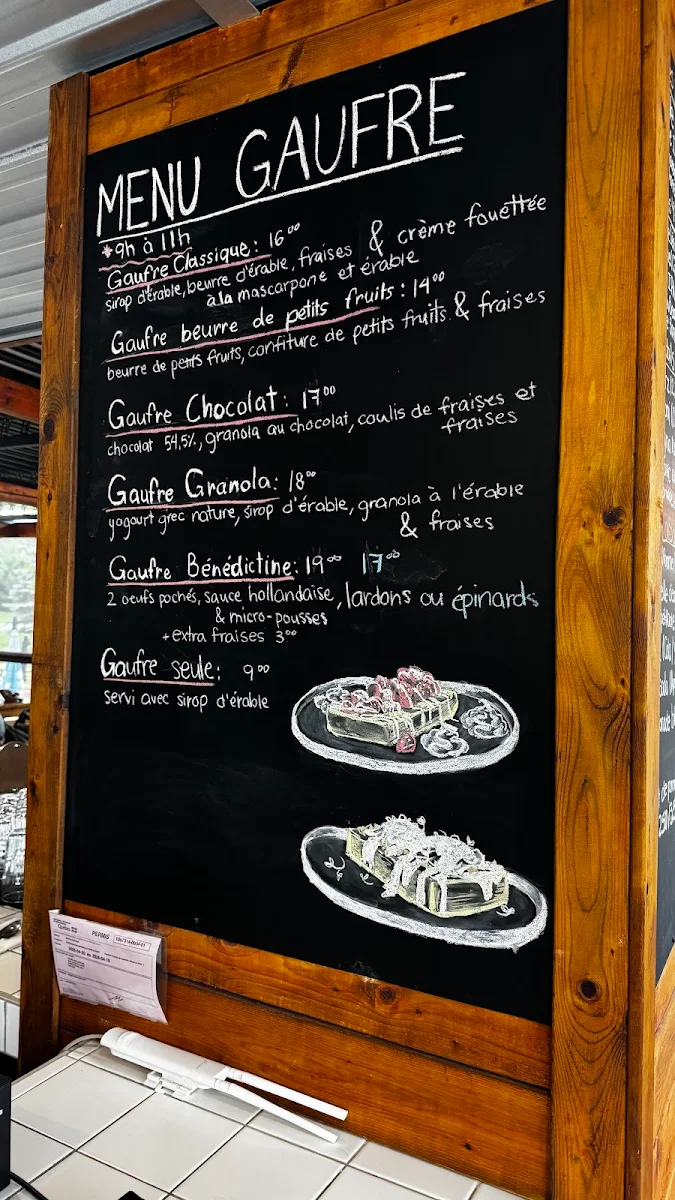 MENU GAUFRE
*9h à 11h
Gaufre Classique: 16⁰⁰
sirop d'érable, beurre d'érable, fraises & crème fouettée
à la mascarpone et érable
Gaufre beurre de petits fruits: 14⁰⁰
beurre de petits fruits, confiture de petits fruits & fraises
Gaufre Chocolat: 17⁰⁰
chocolat 54,5%, granola au chocolat, coulis de fraises et
fraises
Gaufre Granola: 18⁰⁰
yogourt grec nature, sirop d'érable, granola à l'érable
& fraises
Gaufre Bénédictine: 19⁰⁰ 17⁰⁰
2 oeufs pochés, sauce hollandaise, lardons ou épinards
& micro-pousses
+extra fraises 3⁰⁰
Gaufre seule: 9⁰⁰
servi avec sirop d'érable
Québec
PERMIS